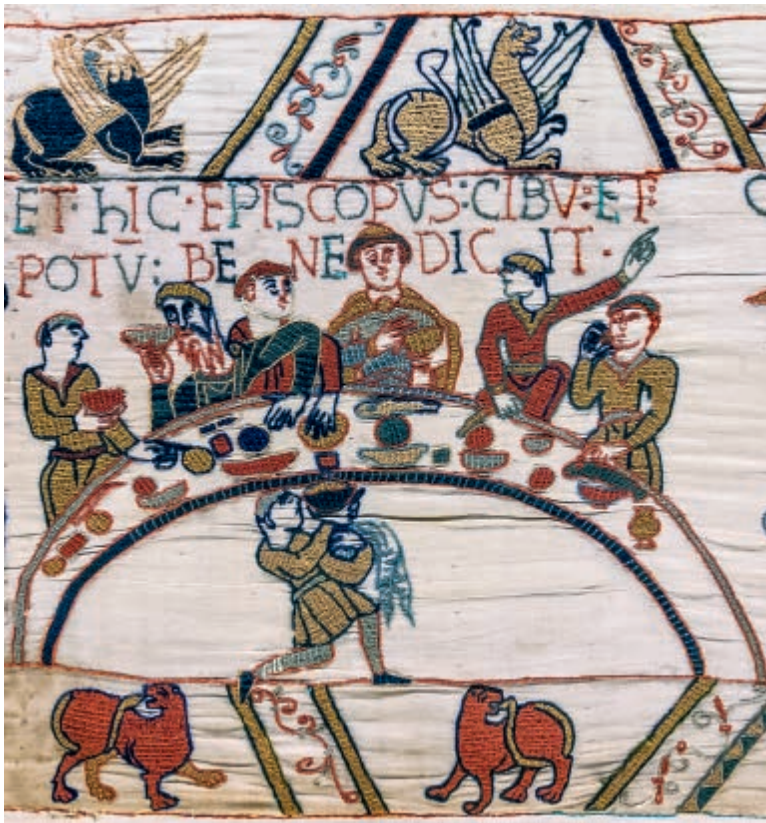 ET· hIC·EPISCOPVS:CIBV̅:ET:
POTV̅: BE NE DICIT·